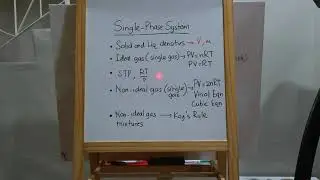 Single-Phase System
• Solid and Liq densities → V, m
• Ideal gas (single gas) → PV=nRT
PV̂=RT
• STP, RT/P
• Non-ideal gas (single gas) → PV=znRT
Virial Eqn
Cubic Eqn
• Non-ideal gas mixtures → Kay's Rule